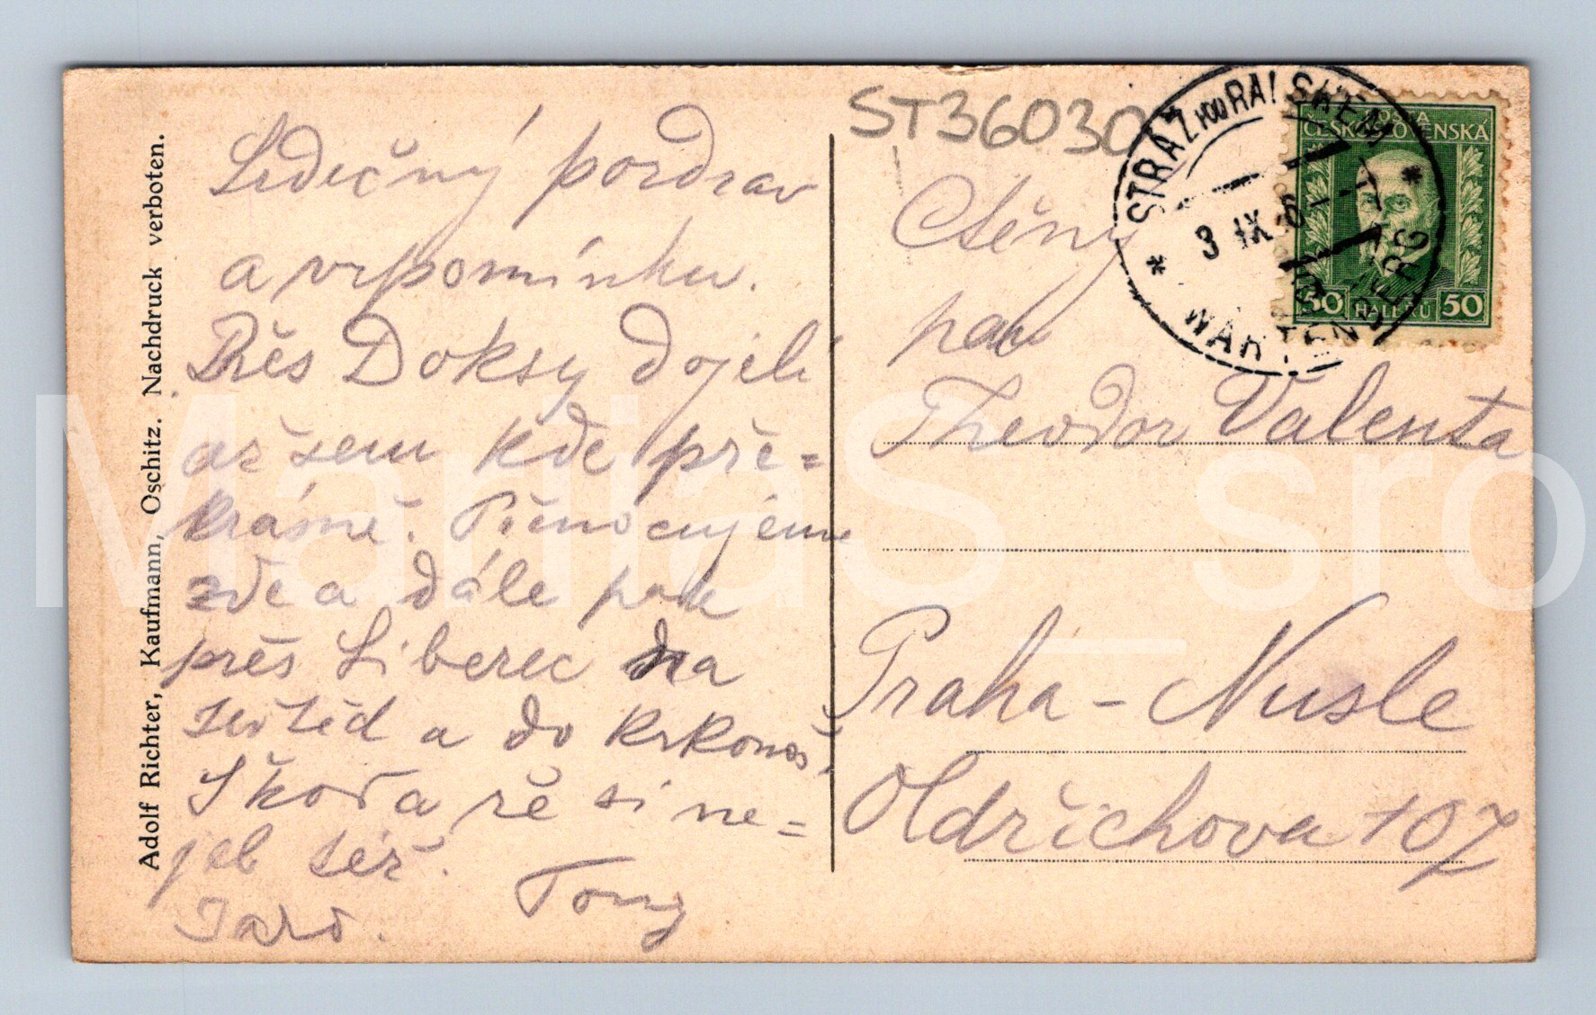 Adolf Richter, Kaufmann, Oschitz. Nachdruck verboten.
Srdečný pozdrav
a vzpomínku.
Přes Doksy dojeli
až sem kde pře=
krásně. Přenocujeme
zde a dále pak
přes Liberec na
Ještěd a do Krkonoš.
Škoda že si ne=
jel též.
Jard. Tony
ST36030
STRÁŽ POD RALSKEM
3 IX 6
WARTENBERG
POŠTA
ČESKOSLOVENSKÁ
50 HALEŘŮ 50
Ctěný
pan
Theodor Valenta
Praha - Nusle
Oldřichova 107
MariaS_sro